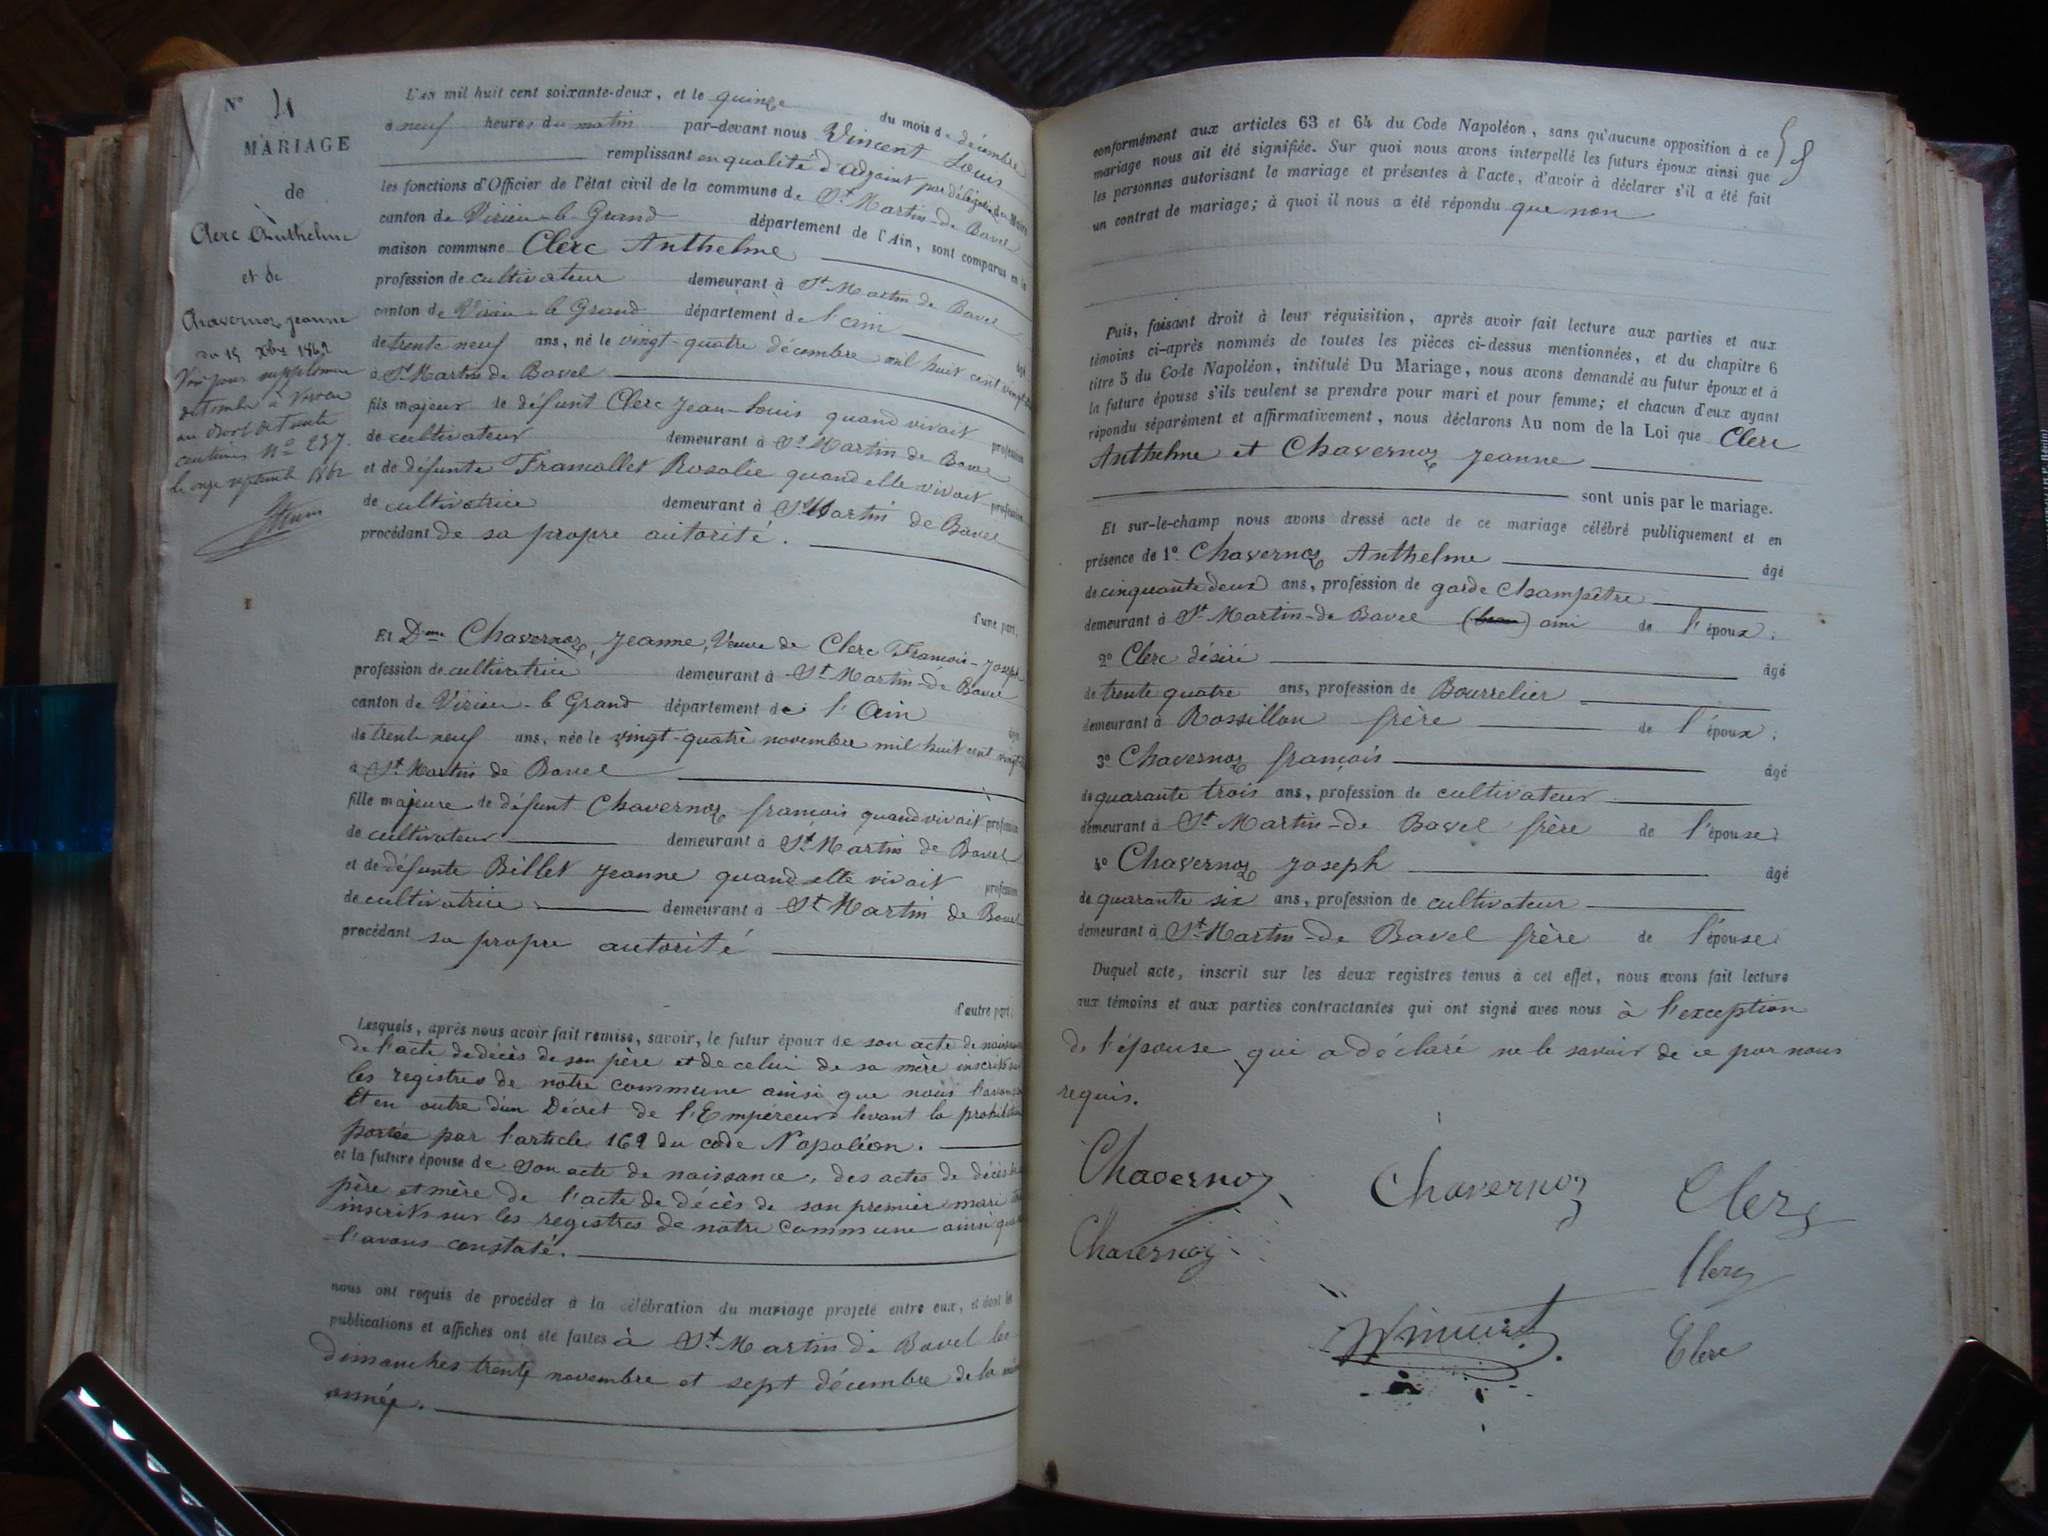 N° 4
MARIAGE
de
Clerc Anthelme
et de
Chavernoz Jeanne
du 15 Xbre 1862
Voir pour supplément
de timbre à
au droit de trente
centimes N° 237.
le onze septembre 1862
L'an mil huit cent soixante-deux, et le quinze du mois de décembre
à neuf heures du matin par-devant nous Vincent Louis
remplissant en qualité d'adjoint par délégation du Maire
les fonctions d'Officier de l'état civil de la commune de St Martin-de Bavel
canton de Virieu-le Grand département de l'Ain, sont comparus en la
maison commune Clerc Anthelme
profession de cultivateur demeurant à St Martin de Bavel
canton de Virieu-le Grand département de l'ain âgé
de trente neuf ans, né le vingt-quatre décembre mil huit cent
à St Martin de Bavel
fils majeur de défunt Clerc Jean-Louis quand vivait profession
de cultivateur demeurant à St Martin de Bavel
et de défunte Francollet Rosalie quand elle vivait profession
de cultivatrice demeurant à St Martin de Bavel
procédant de sa propre autorité.
d'une part,
Et Dme Chavernoz, Jeanne, Veuve de Clerc François-Joseph
profession de cultivatrice demeurant à St Martin-de Bavel
canton de Virieu-le Grand département de l'Ain âgée
de trente neuf ans, née le vingt-quatre novembre mil huit cent
à St Martin de Bavel
fille majeure de défunt Chavernoz françois quand vivait profession
de cultivateur demeurant à St Martin de Bavel
et de défunte Billet Jeanne quand elle vivait profession
de cultivatrice demeurant à St Martin de Bavel
procédant sa propre autorité
d'autre part;
Lesquels, après nous avoir fait remise, savoir, le futur époux de son acte de naissance
de l'acte de décès de son père et de celui de sa mère inscrits sur
les registres de notre commune ainsi que nous l'avons
Et en outre d'un Décret de l'Empereur levant la prohibition
portée par l'article 162 du code Napoléon.
et la future épouse de son acte de naissance, des actes de décès de
père et mère de l'acte de décès de son premier mari
inscrits sur les registres de notre commune ainsi que
l'avons constaté.
nous ont requis de procéder à la célébration du mariage projeté entre eux, et dont les
publications et affiches ont été faites à St Martin de Bavel les
dimanches trente novembre et sept décembre de la même
année.
conformément aux articles 63 et 64 du Code Napoléon, sans qu'aucune opposition à ce
mariage nous ait été signifiée. Sur quoi nous avons interpellé les futurs époux ainsi que
les personnes autorisant le mariage et présentes à l'acte, d'avoir à déclarer s'il a été fait
un contrat de mariage; à quoi il nous a été répondu que non
Puis, faisant droit à leur réquisition, après avoir fait lecture aux parties et aux
témoins ci-après nommés de toutes les pièces ci-dessus mentionnées, et du chapitre 6
titre 5 du Code Napoléon, intitulé Du Mariage, nous avons demandé au futur époux et à
la future épouse s'ils veulent se prendre pour mari et pour femme; et chacun d'eux ayant
répondu séparément et affirmativement, nous déclarons Au nom de la Loi que Clerc
Anthelme et Chavernoz Jeanne
sont unis par le mariage.
Et sur-le-champ nous avons dressé acte de ce mariage célébré publiquement et en
présence de 1° Chavernoz Anthelme âgé
de cinquante deux ans, profession de garde Champêtre
demeurant à St Martin-de Bavel ami de l'époux.
2° Clerc désiré âgé
de trente quatre ans, profession de Bourrelier
demeurant à Rossillon frère de l'époux.
3° Chavernoz françois âgé
de quarante trois ans, profession de cultivateur
demeurant à St Martin-de Bavel frère de l'épouse
4° Chavernoz Joseph âgé
de quarante six ans, profession de cultivateur
demeurant à St Martin-de Bavel frère de l'épouse
Duquel acte, inscrit sur les deux registres tenus à cet effet, nous avons fait lecture
aux témoins et aux parties contractantes qui ont signé avec nous à l'exception
de l'épouse qui a déclaré ne le savoir de ce par nous
requis.
Chavernoz Chavernoz Clerc
Chavernoz
Clerc
Vincent
Clerc